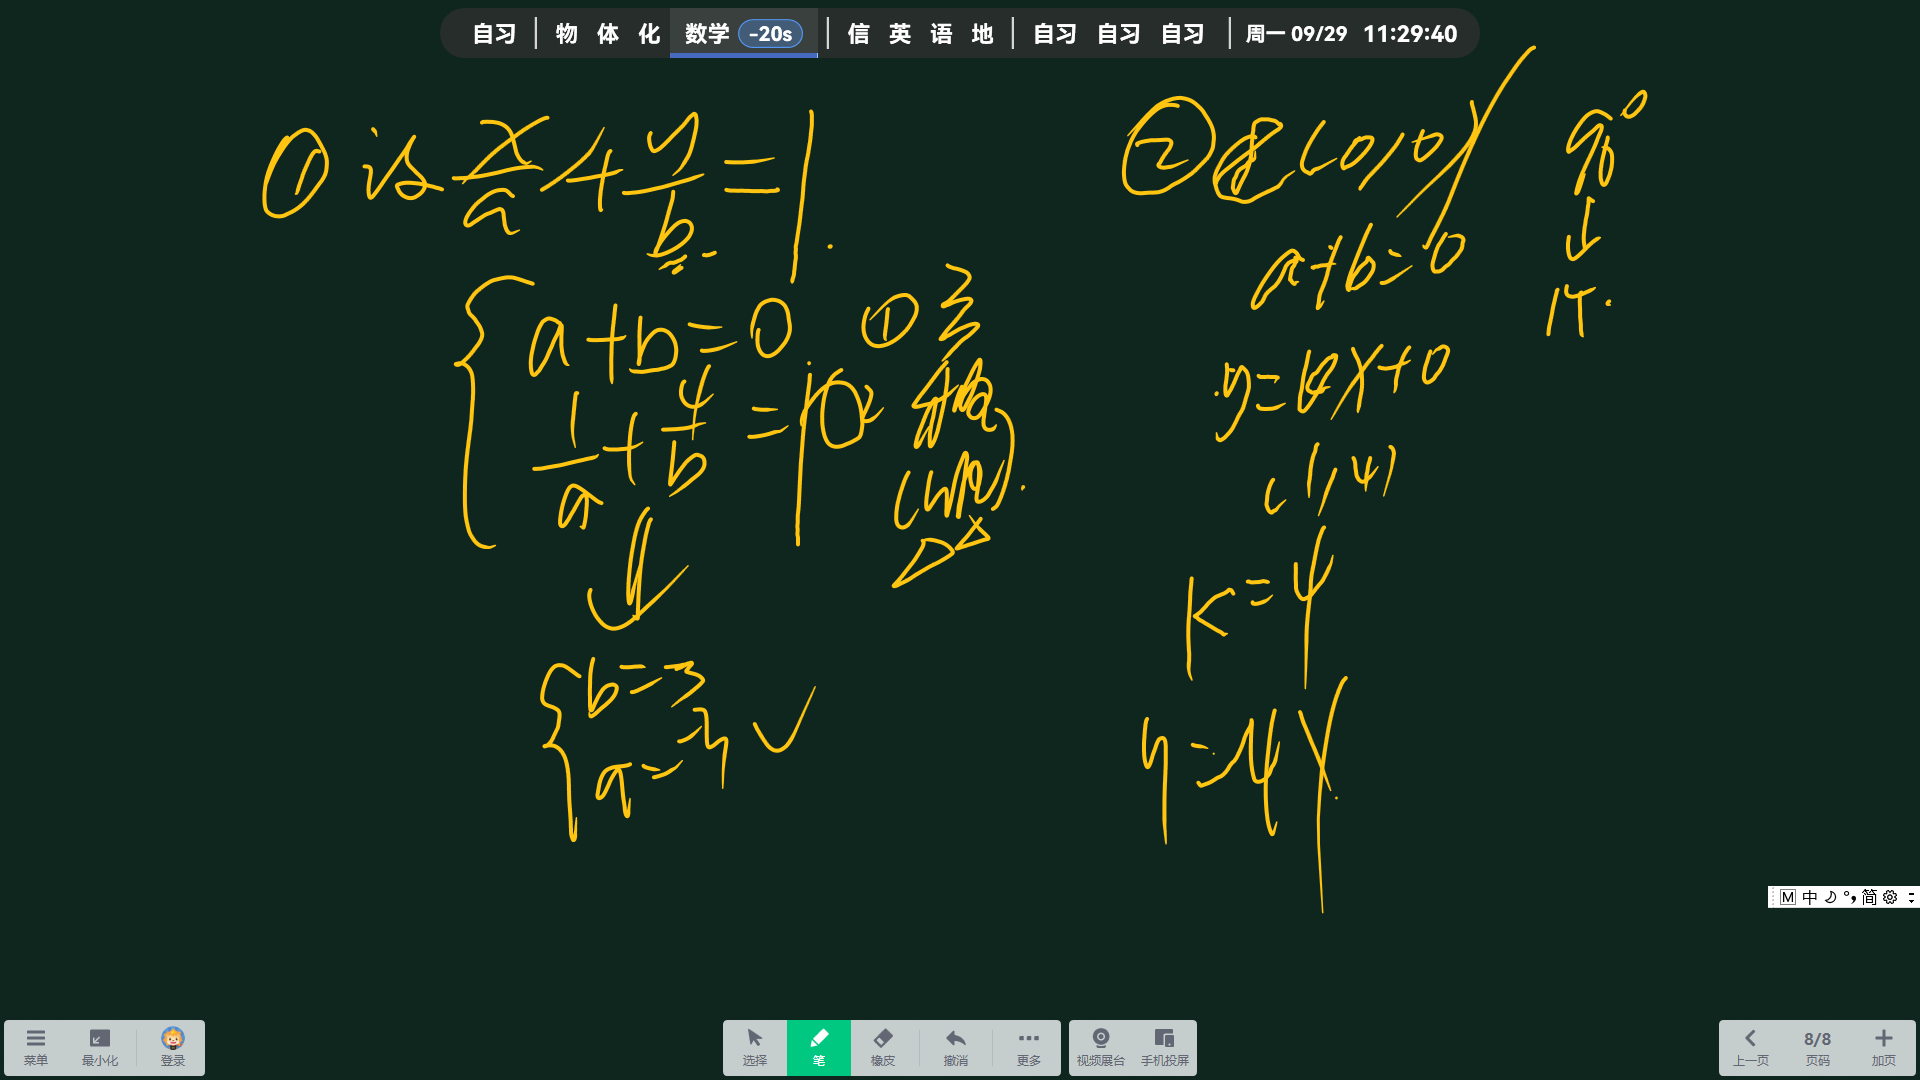 自习 | 物 体 化 数学 -20s | 信 英 语 地 | 自习 自习 自习 | 周一 09/29 11:29:40
① 设 x/a + y/b = 1.
a+b=0 ①
1/a + 4/b = 1 ②
b=3
a=-3 ✓
② 过(0,0)
a+b=0
y=kx+0
(1,4)
K=4
y=4x.
90°
↓
14.
M 中 简
菜单 最小化 登录
选择 笔 橡皮 撤消 更多
视频展台 手机投屏
上一页 8/8 页码 加页